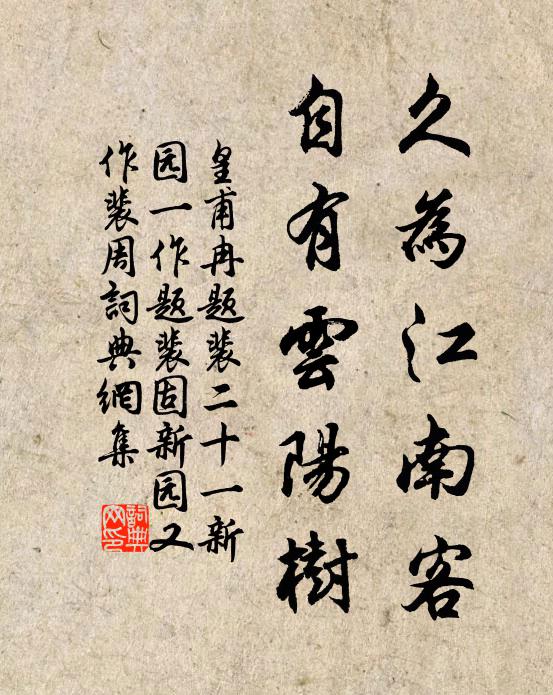 久為江南客
自有雲陽樹
皇甫冉題裴二十一新
园一作題裴固新园又
作裴周詞典網集
詞典网印